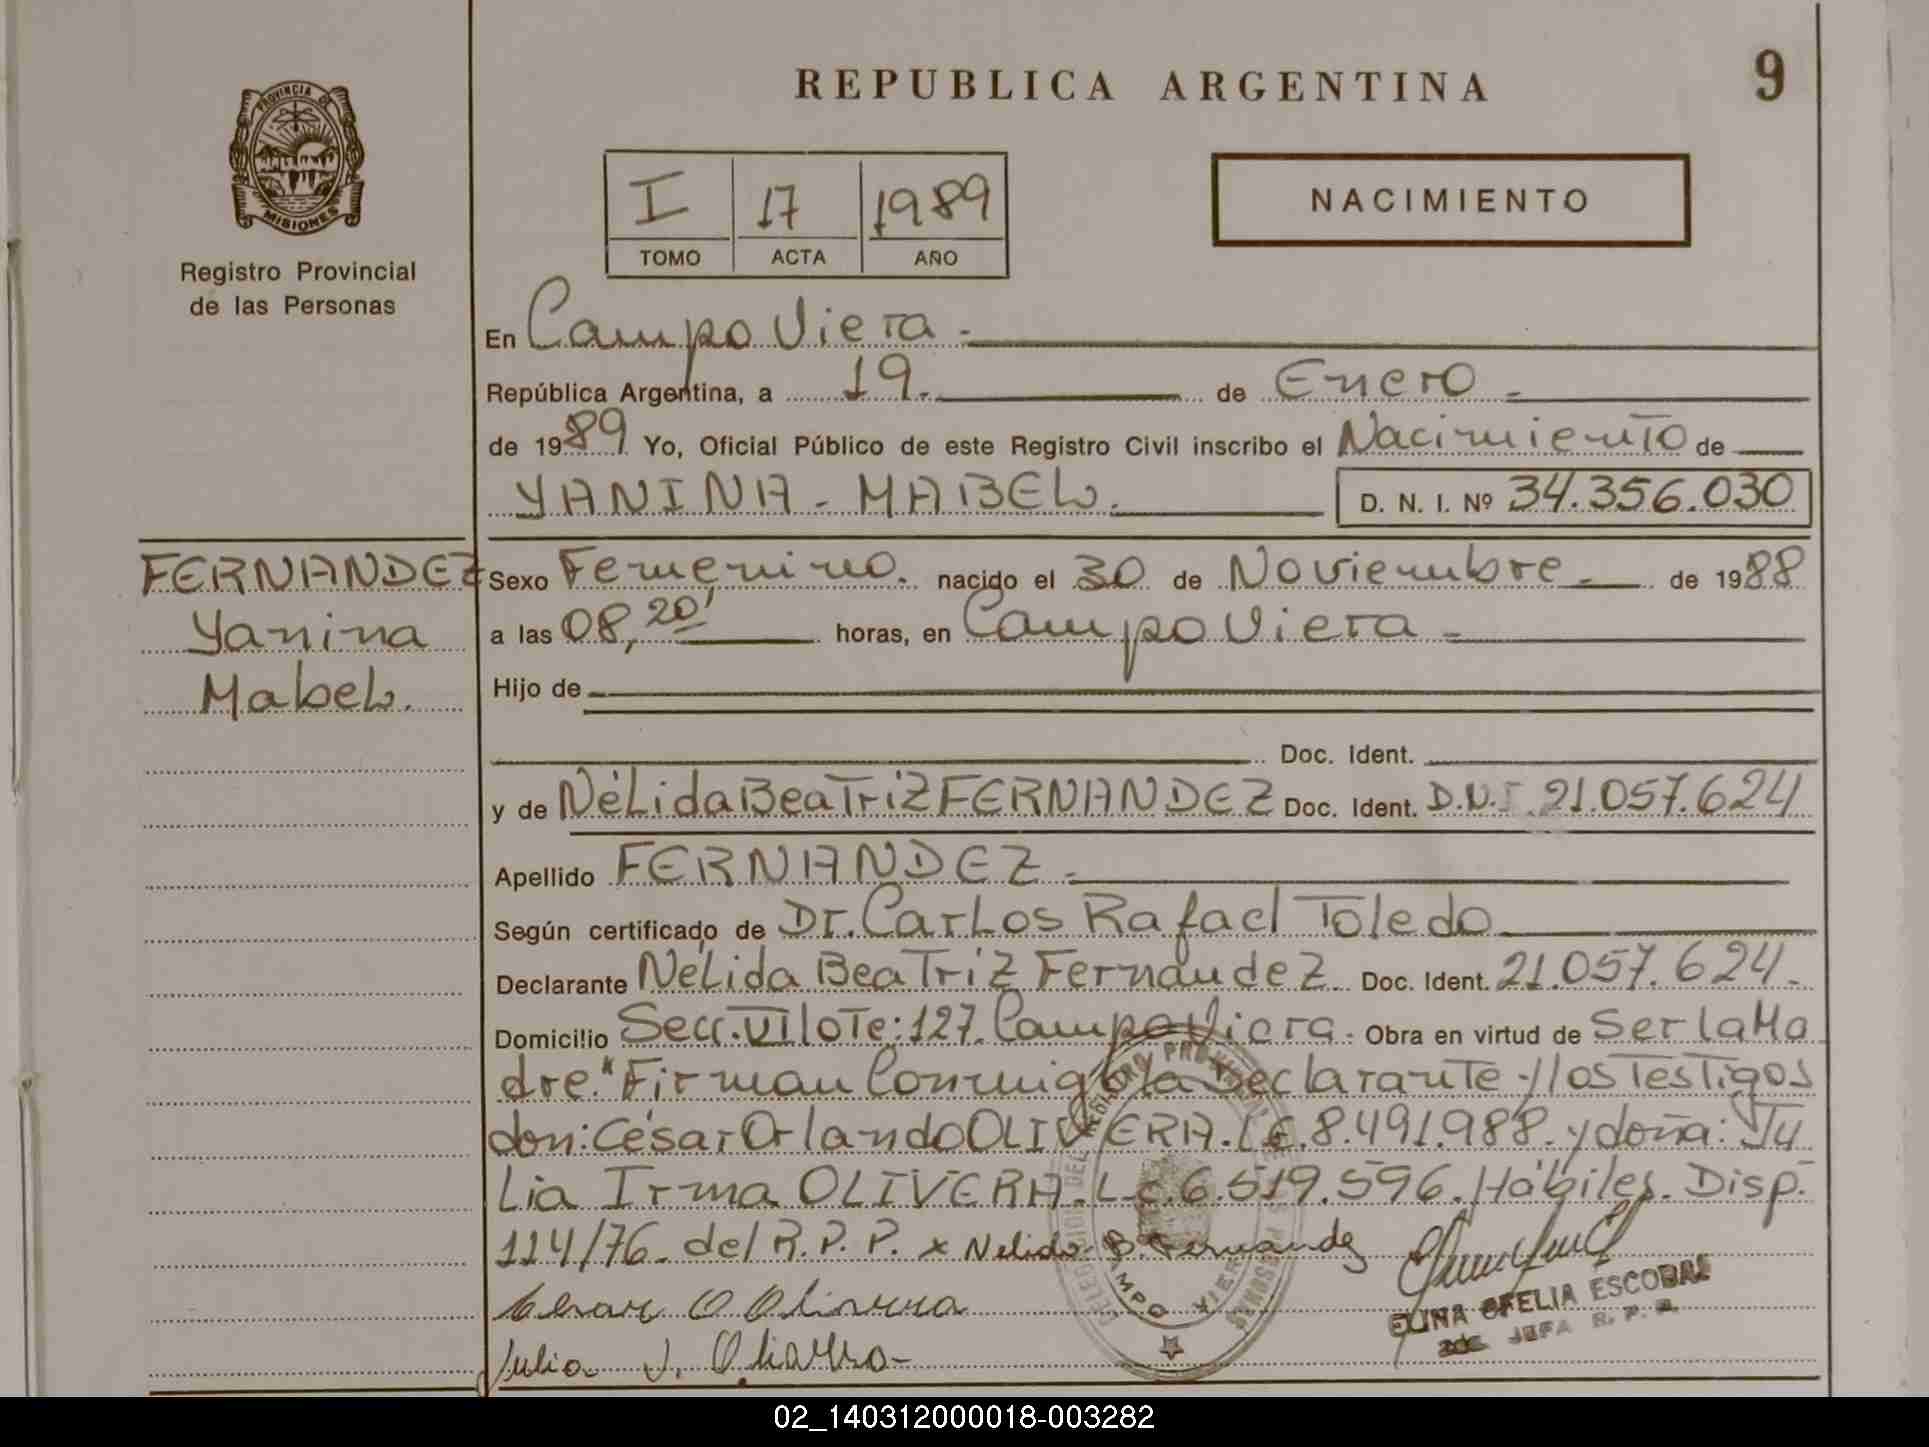 REPUBLICA ARGENTINA
9
PROVINCIA DE
MISIONES
Registro Provincial
de las Personas
I 17 1989
TOMO ACTA AÑO
NACIMIENTO
En Campo Viera.
República Argentina, a 19. de Enero
de 1989 Yo, Oficial Público de este Registro Civil inscribo el Nacimiento de
YANINA - MABEL. D. N. I. Nº 34.356.030
FERNANDEZ
Yanina
Mabel.
Sexo Femenino. nacido el 30 de Noviembre de 1988
a las 08,20' horas, en Campo Viera
Hijo de
Doc. Ident.
y de NéLida BeaTriz FERNANDEZ Doc. Ident. D.N.I. 21.057.624
Apellido FERNANDEZ
Según certificado de Dr. CarLos Rafael Toledo
Declarante NéLida BeaTriz Fernandez Doc. Ident. 21.057.624.
Domicilio Secc. VI lote: 127. Campo Viera. Obra en virtud de Ser la Ma
dre." Firman Conmigo la Declarante y los Testigos
don: César Orlando OLIVERA. L.E. 8.491.988. y doña: Ju
Lia Irma OLIVERA. L.C. 6.519.596. Hábiles. Disp.
114/76. del R.P.P. x Nelida B. Fernandez
Cesar O Olivera
Julia I. Olivera
DELEGACION DEL REGISTRO PROVINCIAL DE LAS PERSONAS
CAMPO VIERA
ELINA OFELIA ESCOBAR
JEFA R. P. P.
02_140312000018-003282